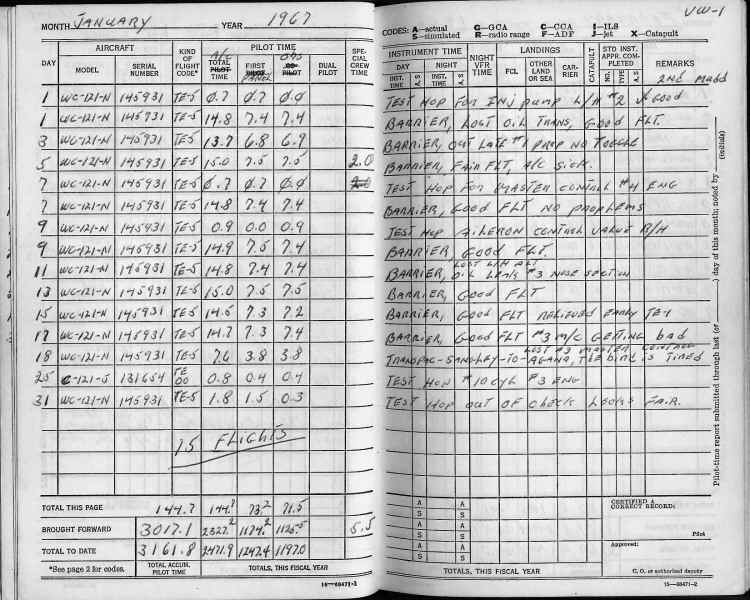 MONTH JANUARY YEAR 1967
AIRCRAFT PILOT TIME
DAY MODEL SERIAL NUMBER KIND OF FLIGHT CODE* A/C TOTAL PILOT TIME FIRST PILOT PANEL CO-PILOT DUAL PILOT SPECIAL CREW TIME
1 WC-121-N 145931 TE-5 0.7 0.7 0.0
1 WC-121-N 145931 TE-5 14.8 7.4 7.4
3 WC-121-N 145931 TE-5 13.7 6.8 6.9
5 WC-121-N 145931 TE-5 15.0 7.5 7.5 2.0
7 WC-121-N 145931 TE-5 0.7 0.7 0.0
7 WC-121-N 145931 TE-5 14.8 7.4 7.4
9 WC-121-N 145931 TE-5 0.9 0.0 0.9
9 WC-121-N 145931 TE-5 14.9 7.5 7.4
11 WC-121-N 145931 TE-5 14.8 7.4 7.4
13 WC-121-N 145931 TE-5 15.0 7.5 7.5
15 WC-121-N 145931 TE-5 14.5 7.3 7.2
17 WC-121-N 145931 TE-5 14.7 7.3 7.4
18 WC-121-N 145931 TE-5 7.6 3.8 3.8
25 C-121-J 131654 TE 00 0.8 0.4 0.4
31 WC-121-N 145931 TE-5 1.8 1.5 0.3
15 FLIGHTS
TOTAL THIS PAGE 144.7 144.7 73.2 71.5
BROUGHT FORWARD 3017.1 2327.2 1174.2 1125.5 5.5
TOTAL TO DATE 3161.8 2471.9 1247.4 1197.0
*See page 2 for codes. TOTAL ACCUM. PILOT TIME TOTALS, THIS FISCAL YEAR
16—68471-2
VW-1
CODES: A—actual G—GCA C—CCA I—ILS
S—simulated R—radio range F—ADF J—jet X—Catapult
INSTRUMENT TIME LANDINGS STD INST. APPR. COMPLETED
DAY NIGHT NIGHT VFR TIME FCL OTHER LAND OR SEA CARRIER CATAPULT REMARKS
INST. TIME A, S INST. TIME A, S NO. TYPE A, S 2ND
TEST HOP FOR INJ PUMP L/H #2 GOOD
BARRIER, LOST OIL TRANS, GOOD FLT.
BARRIER, OUT LATE #1 PROP NO TOGGLE
BARRIER, FAIR FLT, A/C SICK.
TEST HOP FOR MASTER CONTROL #4 ENG
BARRIER, GOOD FLT NO PROBLEMS
TEST HOP AILERON CONTROL VALUE R/H
BARRIER, GOOD FLT.
BARRIER, OIL LEAK #3 NOSE SECTION
BARRIER, GOOD FLT
BARRIER, GOOD FLT RELIEVED EARLY
BARRIER, GOOD FLT #3 M/C GETTING bad
LOST #3 MASTER CONTROL
TRANSPAC-SANGLEY-TO-AGANA, THE BIRD IS TIRED
TEST HOP #10 CYL #3 ENG
TEST HOP OUT OF CHECK LOOKS FAIR.
Pilot-time report submitted through last (or ) day of this month; noted by (initials)
A A
S S
A A
S S
A A
S S
CERTIFIED A CORRECT RECORD:
Pilot
Approved:
TOTALS, THIS FISCAL YEAR
C. O. or authorized deputy
16—68471-2